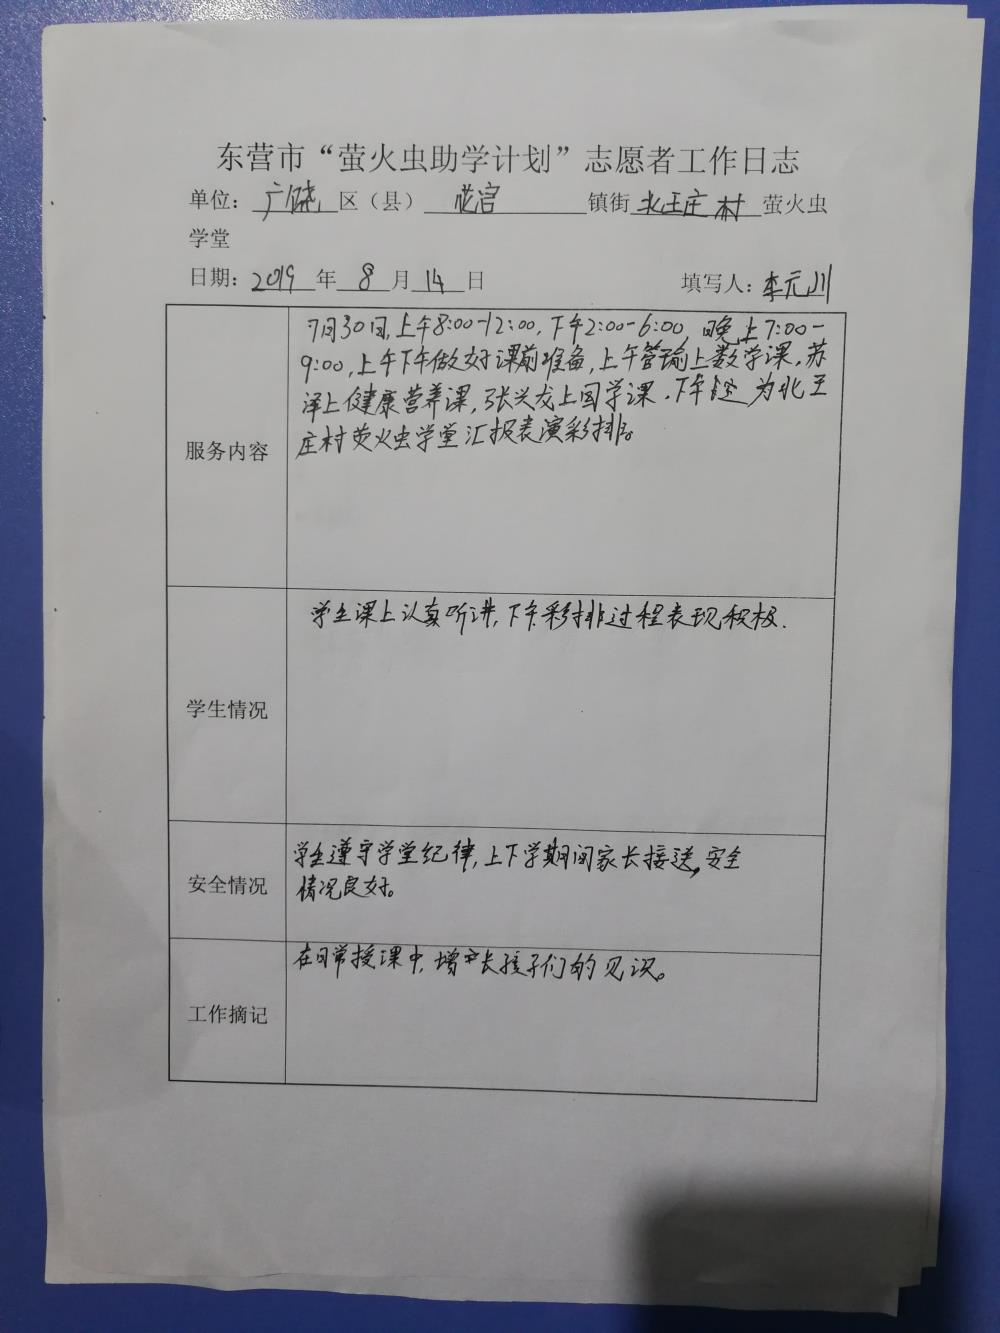 东营市“萤火虫助学计划”志愿者工作日志
单位：广饶区（县）花官镇街北王庄村萤火虫
学堂
日期：2019年8月14日 填写人：李元川
服务内容
7月30日,上午8:00-12:00,下午2:00-6:00,晚上7:00-
9:00,上午下午做好课前准备,上午管瑜上数学课,苏
泽上健康营养课,张兴龙上国学课.下午为北王
庄村荧火虫学堂汇报表演彩排。
学生情况
学生课上认真听讲,下午彩排过程表现积极.
安全情况
学生遵守学堂纪律,上下学期间家长接送,安全
情况良好。
工作摘记
在日常授课中,增长孩子们的见识。